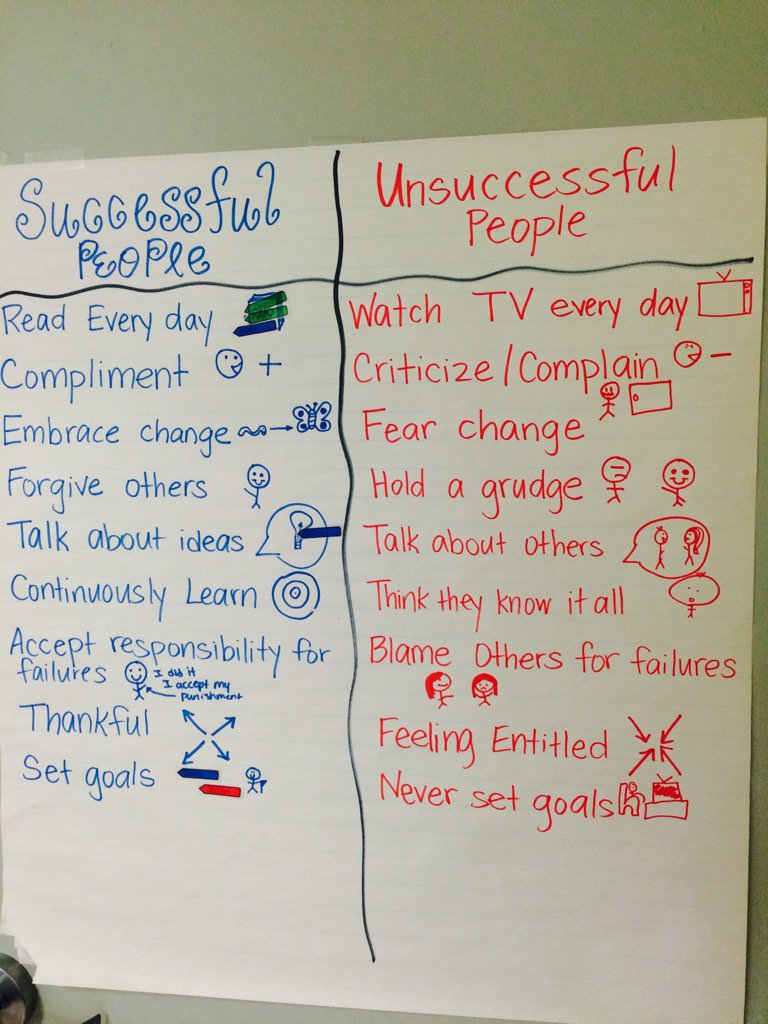 Successful
People
Read Every day
Compliment +
Embrace change
Forgive others
Talk about ideas
Continuously Learn
Accept responsibility for
failures
I did it
I accept my
punishment
Thankful
Set goals
Unsuccessful
People
Watch TV every day
Criticize/Complain −
Fear change
Hold a grudge
Talk about others
Think they know it all
Blame Others for failures
Feeling Entitled
Never set goals